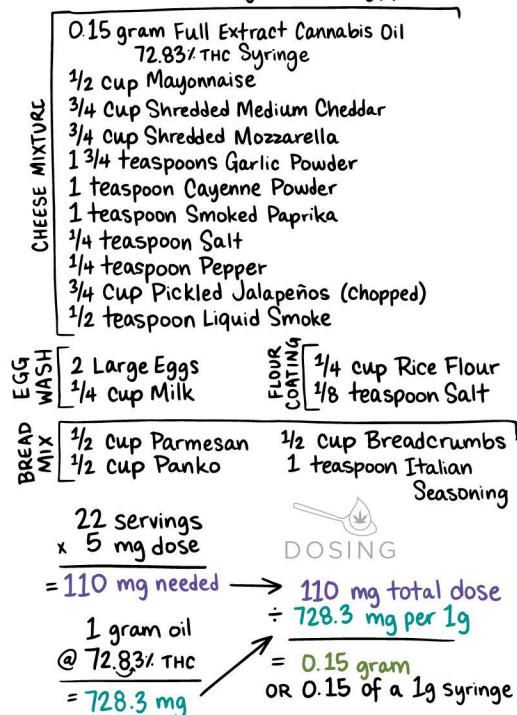 0.15 gram Full Extract Cannabis Oil
72.83% THC Syringe
1/2 cup Mayonnaise
3/4 Cup Shredded Medium Cheddar
3/4 cup Shredded Mozzarella
1 3/4 teaspoons Garlic Powder
1 teaspoon Cayenne Powder
1 teaspoon Smoked Paprika
1/4 teaspoon Salt
1/4 teaspoon Pepper
3/4 Cup Pickled Jalapeños (Chopped)
1/2 teaspoon Liquid Smoke
CHEESE MIXTURE
EGG WASH
2 Large Eggs
1/4 cup Milk
FLOUR COATING
1/4 cup Rice Flour
1/8 teaspoon Salt
BREAD MIX
1/2 Cup Parmesan
1/2 cup Panko
1/2 Cup Breadcrumbs
1 teaspoon Italian
Seasoning
DOSING
22 servings
x 5 mg dose
= 110 mg needed
1 gram oil
@ 72.83% THC
= 728.3 mg
110 mg total dose
÷ 728.3 mg per 1g
= 0.15 gram
OR 0.15 of a 1g syringe